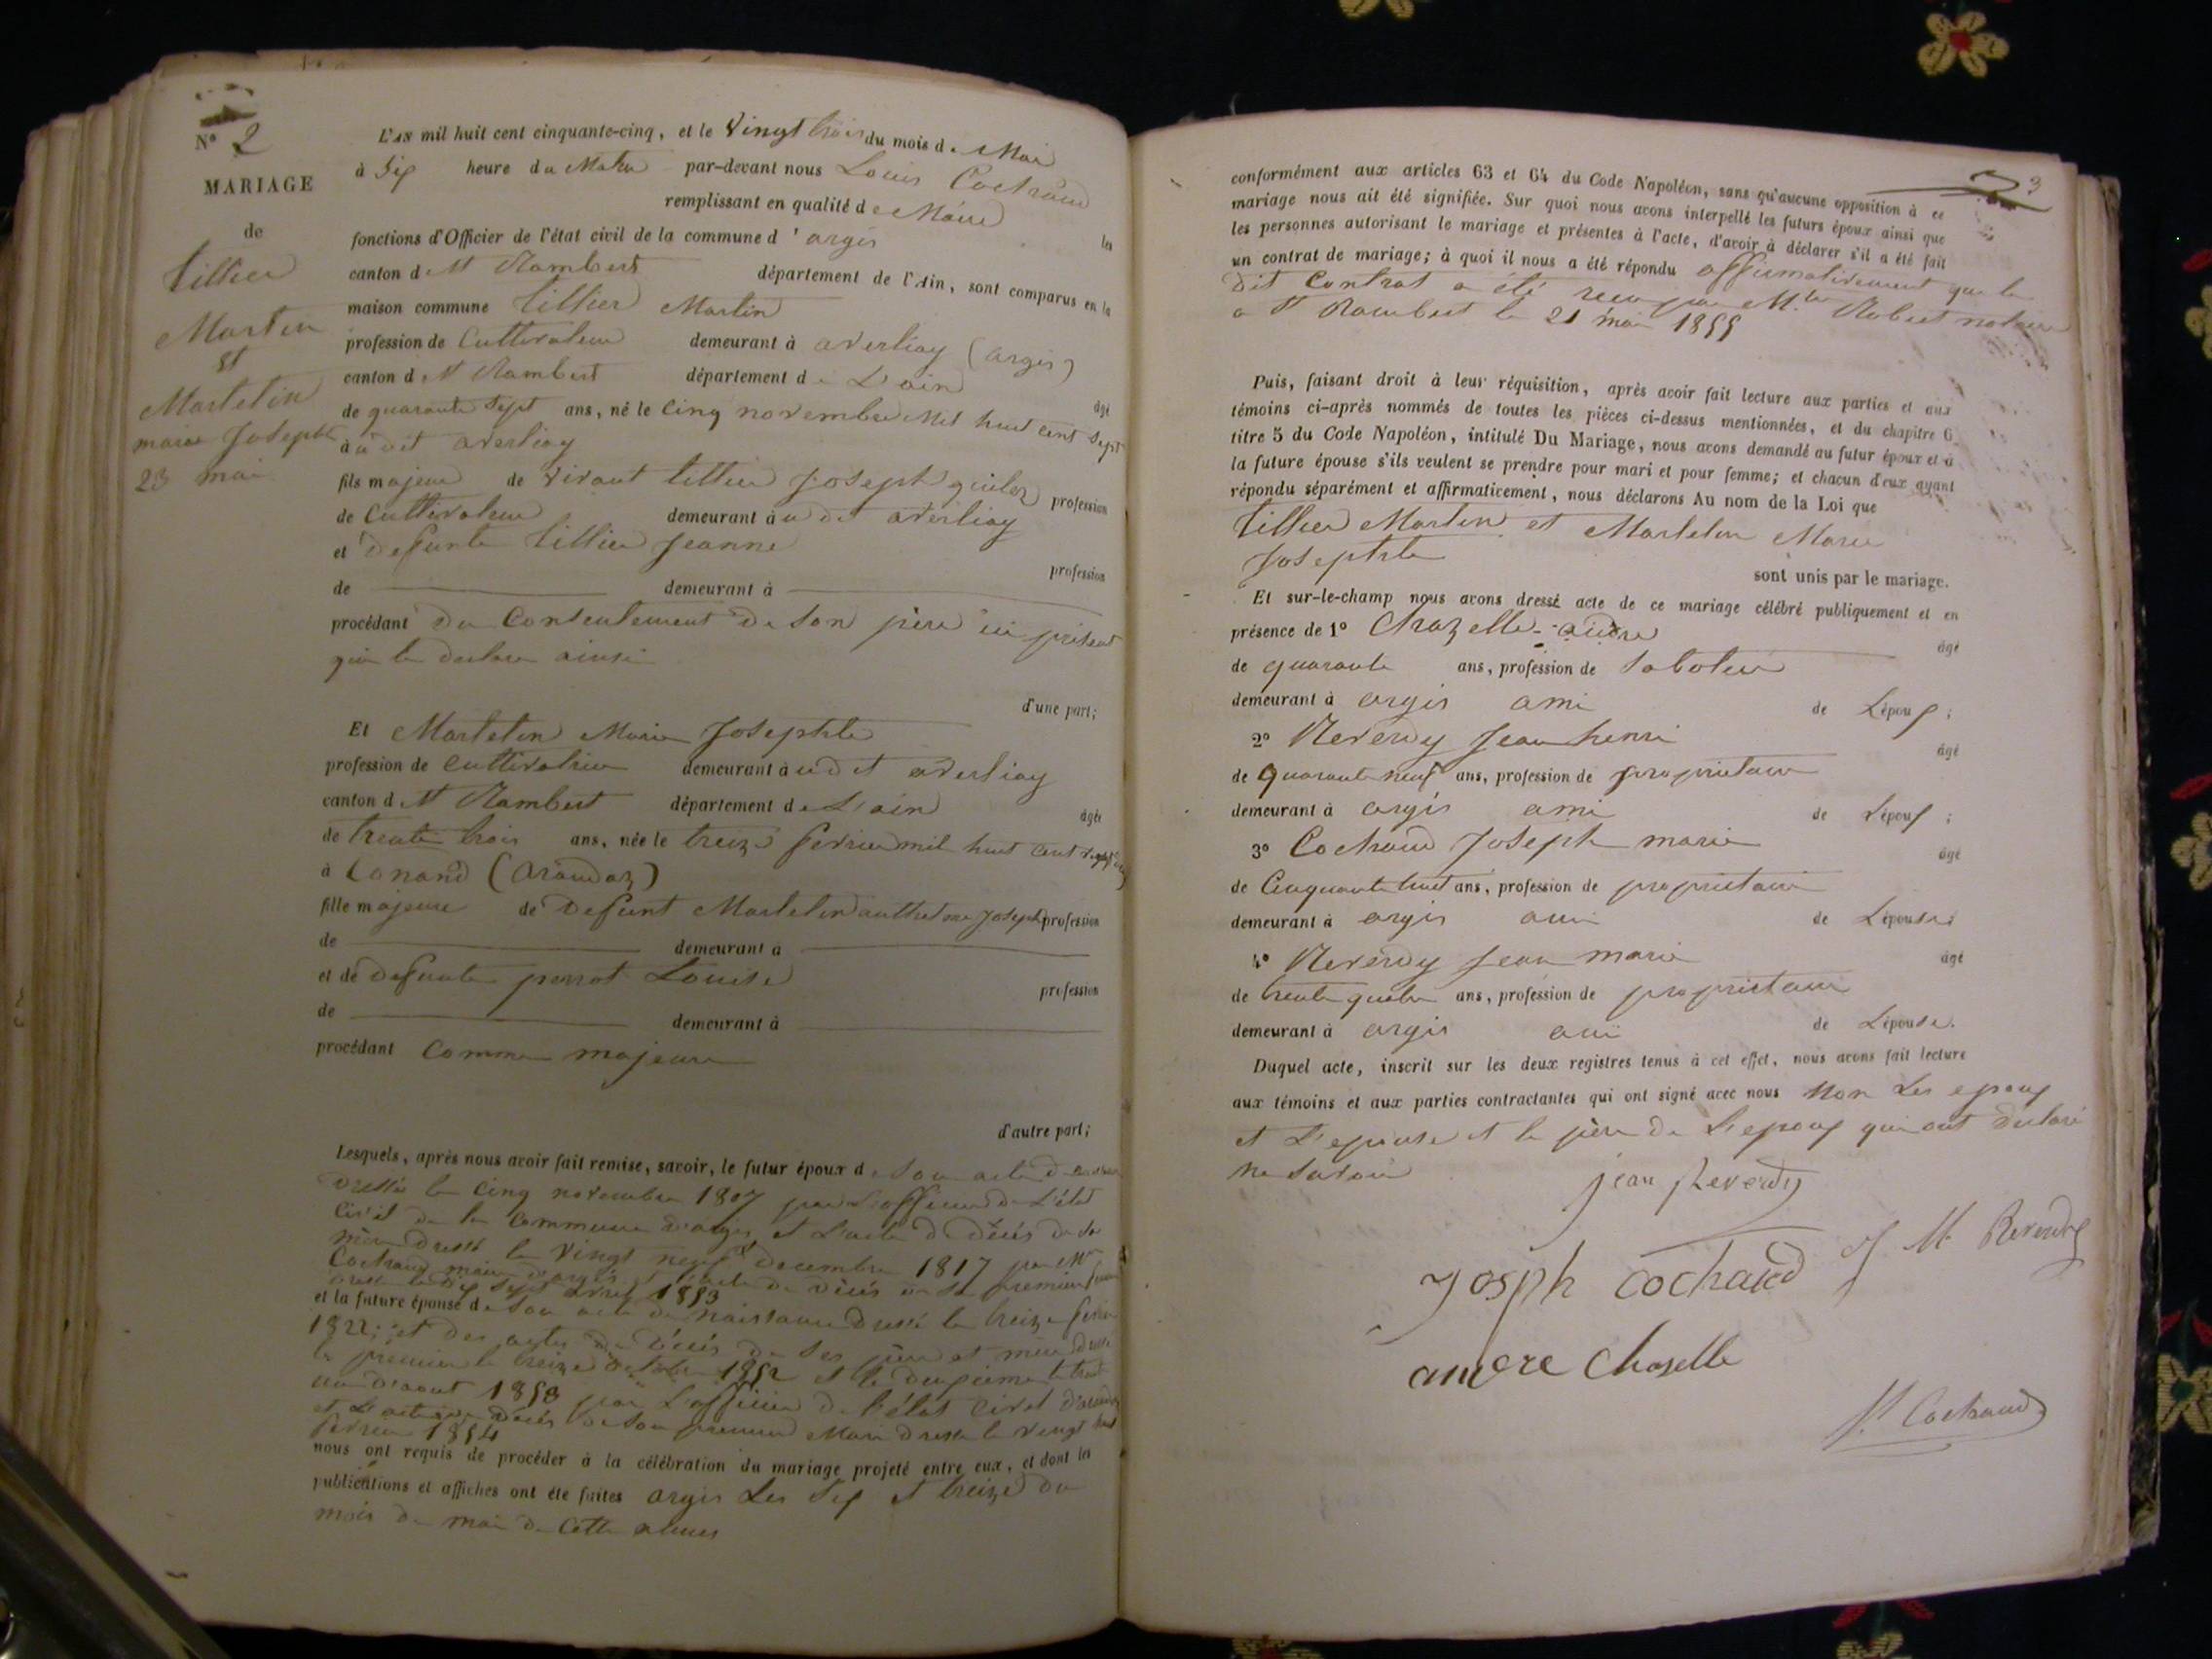 N° 2
MARIAGE
de
tillier
Martin
et
Martelin
marie Josephte
23 mai
L'AN mil huit cent cinquante-cinq, et le Vingt trois du mois de Mai
à Six heure du Matin par-devant nous Louis Cochaud
remplissant en qualité de Maire les
fonctions d'Officier de l'état civil de la commune d'argis
canton de St Rambert département de l'Ain, sont comparus en la
maison commune tillier Martin
profession de Cultivateur demeurant à averliaz (argis)
canton de St Rambert département de L'ain âgé
de quarante Sept ans, né le Cinq novembre Mil huit cent Sept
à udit averliaz
fils majeur de vivant tillier Joseph profession
de Cultivateur demeurant à udit averliaz
et defunte tillier Jeanne profession
de demeurant à
procédant du Consentement de Son père ici présent
qui le declare ainsi
d'une part;
Et Martelin Marie Josephte
profession de cultivatrice demeurant à udit averliaz
canton de St Rambert département de L'ain âgée
de trente trois ans, née le treize fevrier mil huit cent
à Conand (Arandaz)
fille majeure de Defunt Martelin anthelme Joseph profession
de demeurant à
et de defunte perrot Louise profession
de demeurant à
procédant Comme majeure
d'autre part;
Lesquels, après nous avoir fait remise, savoir, le futur époux de Son acte de
dressé le cinq novembre 1807 par L'officier de L'état
civil de la Commune d'argis et L'acte de décès de Sa
mère dressé le vingt neuf decembre 1817 par Mr
Cochaud maire d'argis et L'acte de décès de Sa premiere femme
dressé le dix Sept avril 1853
et la future épouse de Son acte de naissance dressé le treize fevrier
1822; et des actes de décès de Ses père et mère dressé
le premier le treize octobre 1852 et le deuxieme le trente
un d'aout 1853 par L'officier de l'état civil d'arandaz
et L'acte de décès de Son premier Mari dressé le vingt huit
fevrier 1854
nous ont requis de procéder à la célébration du mariage projeté entre eux, et dont les
publications et affiches ont été faites argis Les Six et treize du
mois de mai de cette année
3
conformément aux articles 63 et 64 du Code Napoléon, sans qu'aucune opposition à ce
mariage nous ait été signifiée. Sur quoi nous avons interpellé les futurs époux ainsi que
les personnes autorisant le mariage et présentes à l'acte, d'avoir à déclarer s'il a été fait
un contrat de mariage; à quoi il nous a été répondu affirmativement que le
dit Contrat a été reçu par Mtre Robert notaire
a St Rambert le 21 mai 1855
Puis, faisant droit à leur réquisition, après avoir fait lecture aux parties et aux
témoins ci-après nommés de toutes les pièces ci-dessus mentionnées, et du chapitre 6
titre 5 du Code Napoléon, intitulé Du Mariage, nous avons demandé au futur époux et à
la future épouse s'ils veulent se prendre pour mari et pour femme; et chacun d'eux ayant
répondu séparément et affirmativement, nous déclarons Au nom de la Loi que
tillier Martin et Martelin Marie
Josephte
sont unis par le mariage.
Et sur-le-champ nous avons dressé acte de ce mariage célébré publiquement et en
présence de 1° Chazelle andre âgé
de quarante ans, profession de Saboteur
demeurant à argis ami de L'époux;
2° Reverdy Jean henri âgé
de quarante neuf ans, profession de proprietaire
demeurant à argis ami de L'époux;
3° Cochaud Joseph marie âgé
de Cinquante huit ans, profession de proprietaire
demeurant à argis ami de L'épouse;
4° Reverdy Jean marie âgé
de trente quatre ans, profession de proprietaire
demeurant à argis ami de L'épouse.
Duquel acte, inscrit sur les deux registres tenus à cet effet, nous avons fait lecture
aux témoins et aux parties contractantes qui ont signé avec nous Non Les epoux
et L'epouse et le père de L'epoux qui ont declaré
ne Savoir
jean Reverdy
Josph cochaud J M Reverdy
andre Chaselle
L. Cochaud